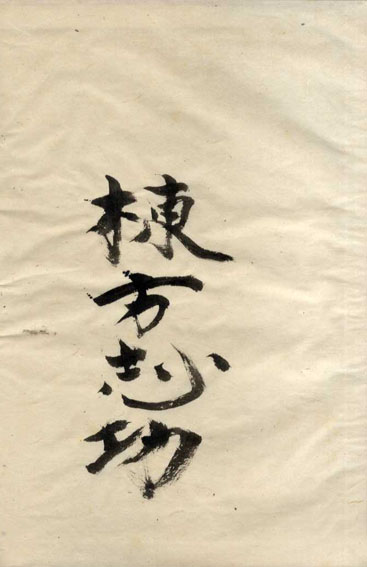 棟方志功